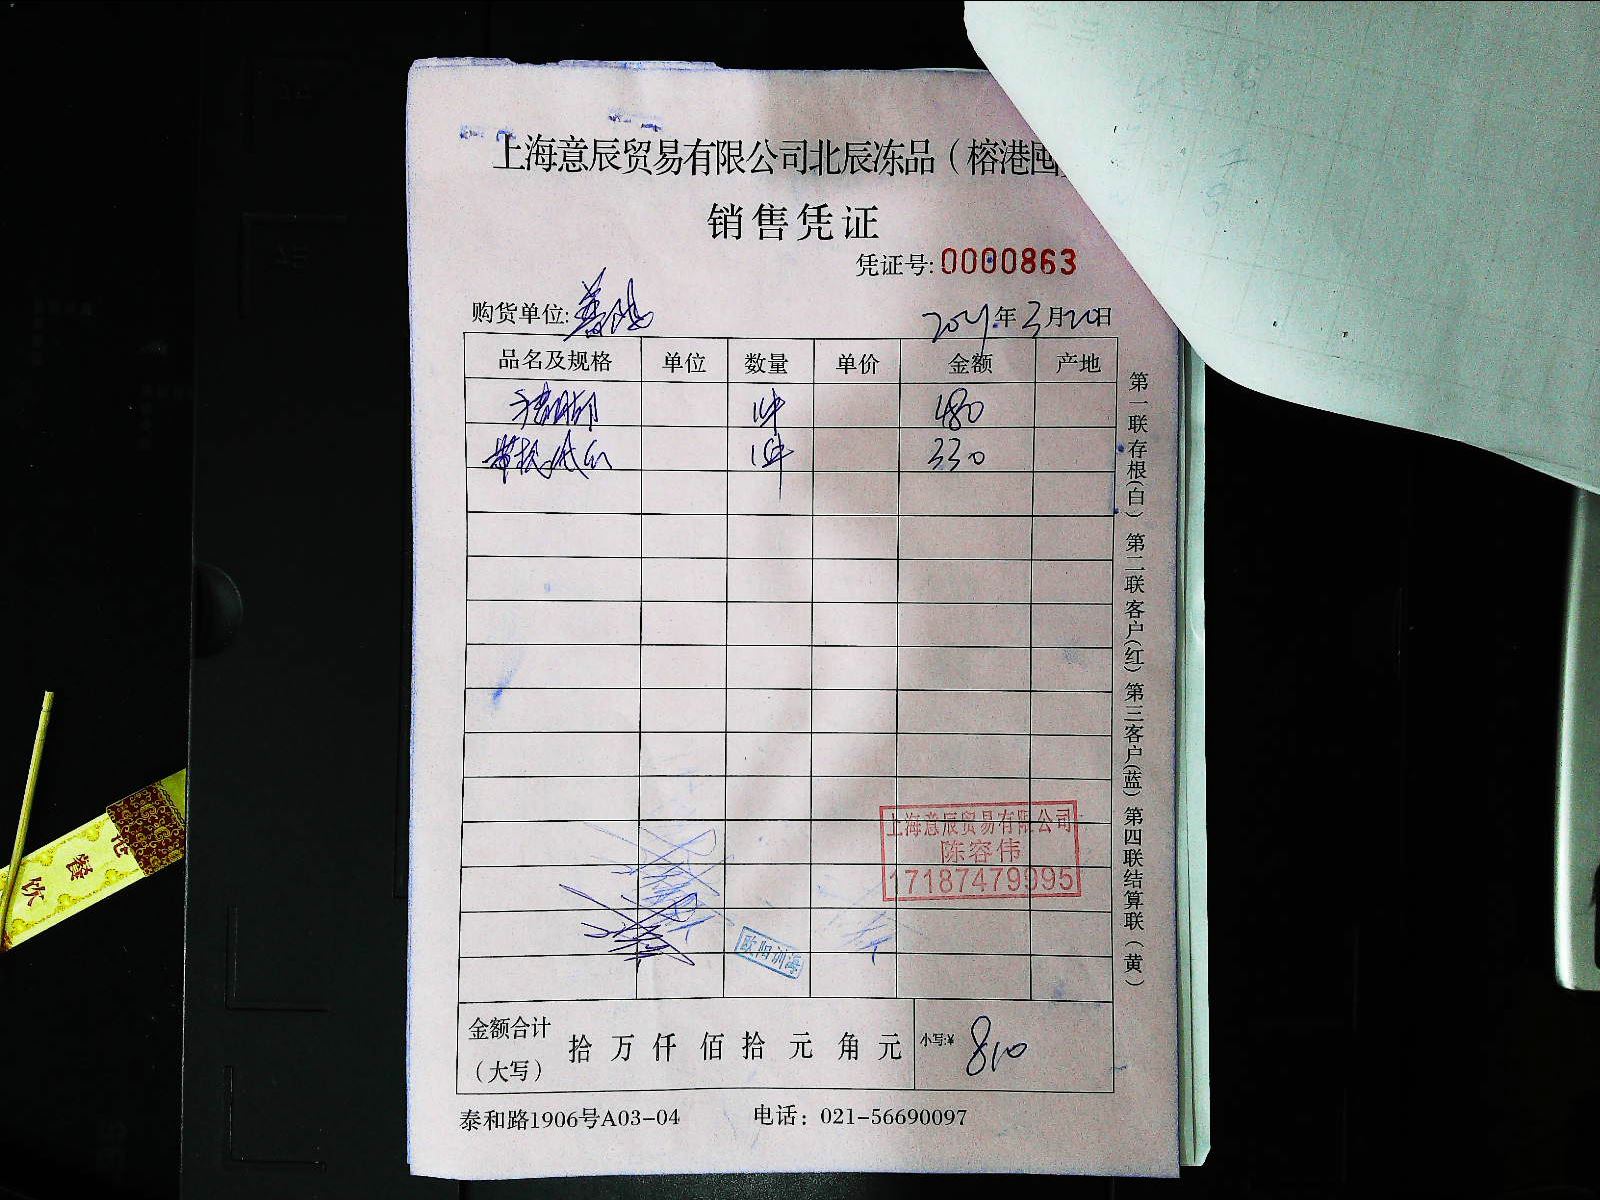 上海意辰贸易有限公司北辰冻品（榕港囤
销售凭证
凭证号:0000863
购货单位:
2021年3月20日
品名及规格 单位 数量 单价 金额 产地
1件 480
1件 330
上海意辰贸易有限公司
陈容伟
17187479995
欧阳训海
金额合计（大写） 拾 万 仟 佰 拾 元 角 元 小写:¥ 810
泰和路1906号A03-04 电话：021-56690097
第一联存根(白) 第二联客户(红) 第三客户(蓝) 第四联结算联(黄)
餐饮